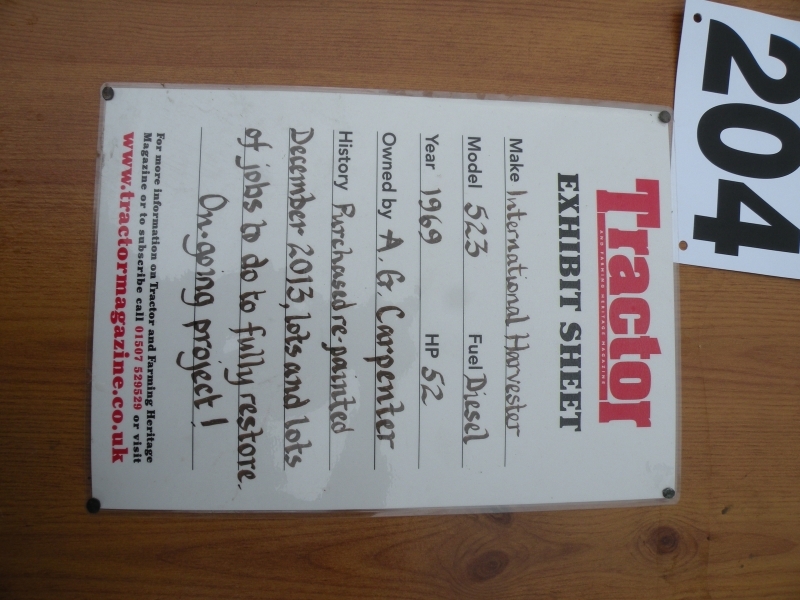 204
Tractor
AND FARMING HERITAGE MAGAZINE
EXHIBIT SHEET
Make International Harvester
Model 523 Fuel Diesel
Year 1969 HP 52
Owned by A. G. Carpenter
History Purchased re-painted
December 2013, lots and lots
of jobs to do to fully restore.
On-going project!
For more information on Tractor and Farming Heritage
Magazine or to subscribe call 01507 529529 or visit
www.tractormagazine.co.uk